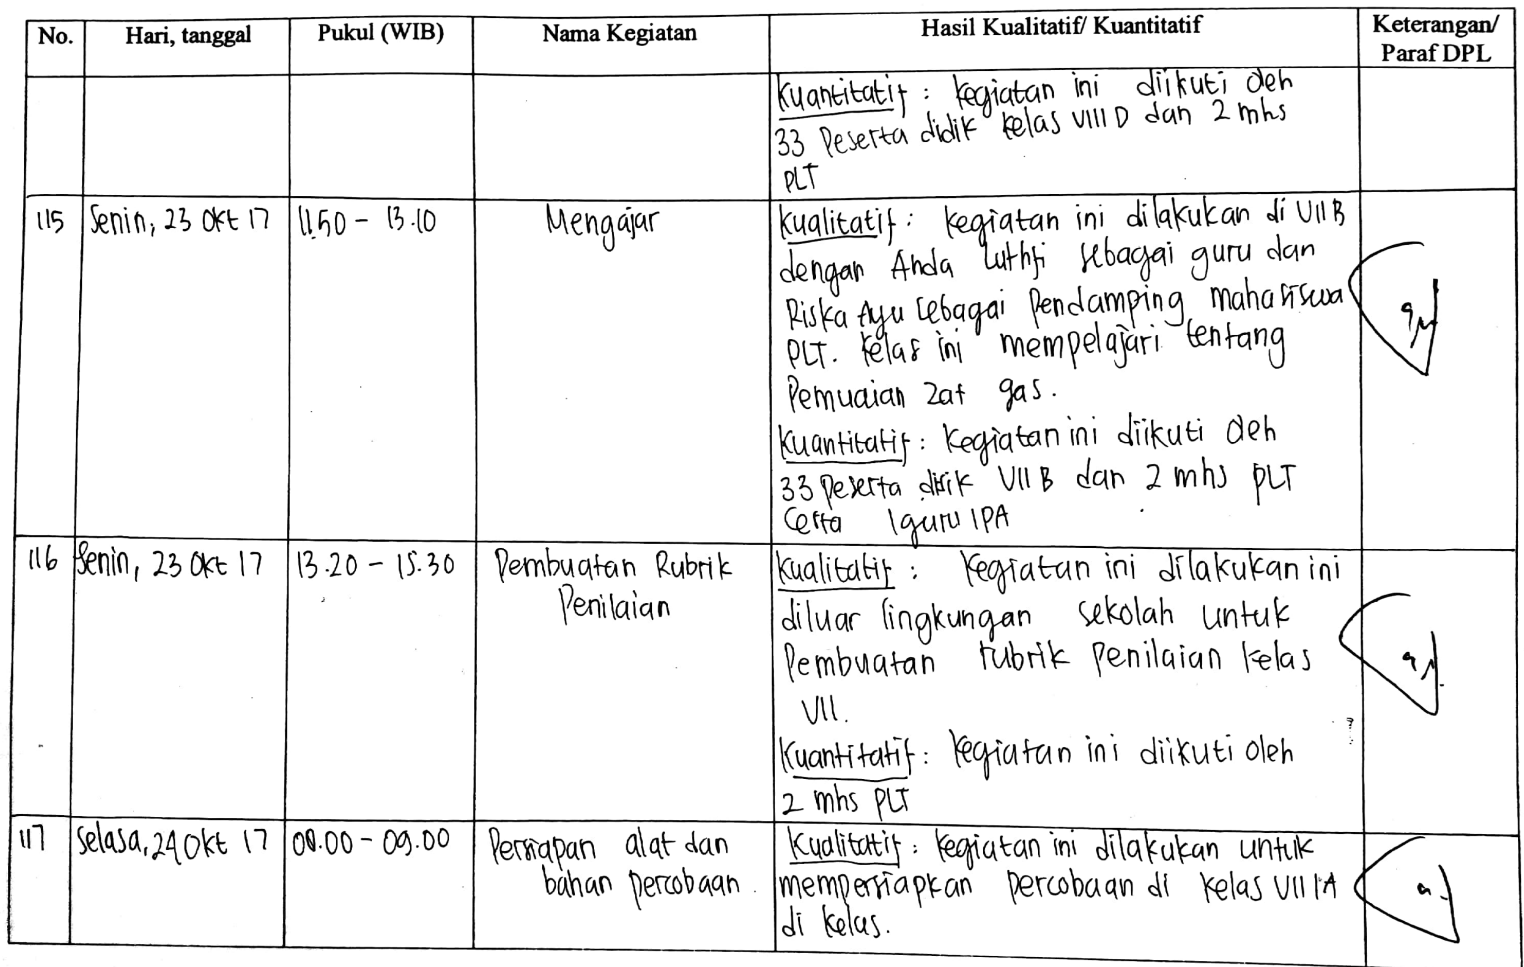 No. Hari, tanggal Pukul (WIB) Nama Kegiatan Hasil Kualitatif/ Kuantitatif Keterangan/
Paraf DPL
Kuantitatif : kegiatan ini diikuti oleh
33 Peserta didik kelas VIII D dan 2 mhs
PLT
115 Senin, 23 Okt 17 11.50 - 13.10 Mengajar Kualitatif : kegiatan ini dilakukan di VII B
dengan Anda Luthfi sebagai guru dan
Riska Ayu sebagai Pendamping mahasiswa
PLT. Kelas ini mempelajari tentang
Pemuaian zat gas.
Kuantitatif : Kegiatan ini diikuti oleh
33 peserta didik VII B dan 2 mhs PLT
serta 1 guru IPA
116 Senin, 23 Okt 17 13.20 - 15.30 Pembuatan Rubrik Kualitatif : Kegiatan ini dilakukan ini
Penilaian diluar lingkungan sekolah untuk
Pembuatan rubrik penilaian kelas
VII.
Kuantitatif : kegiatan ini diikuti oleh
2 mhs PLT
117 Selasa, 24 Okt 17 - 09.00 Persiapan alat dan Kualitatif : kegiatan ini dilakukan untuk
bahan percobaan mempersiapkan percobaan di kelas
di kelas.